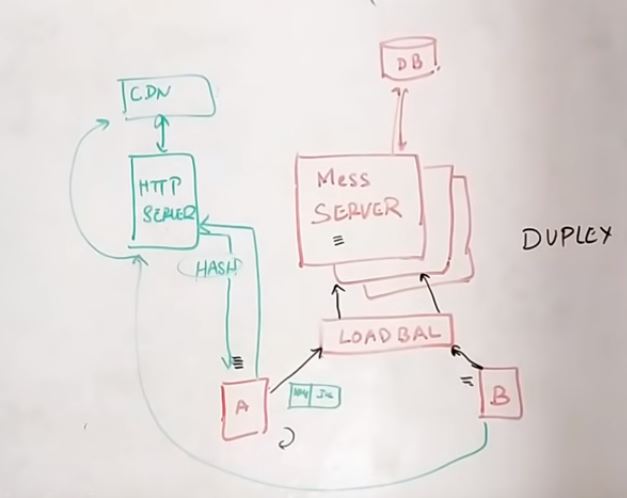 DB
CDN
HTTP
SERVER
Mess
SERVER
DUPLEX
HASH
LOAD BAL
A
B